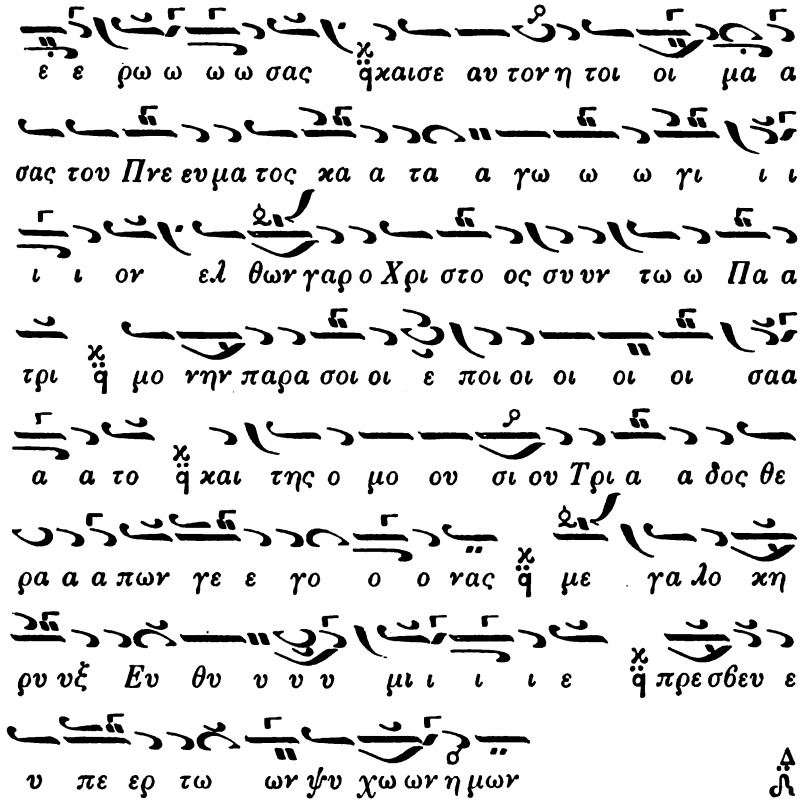 ε ε ρω ω ω ω σας ϗ̈ q καισε αυ τον η τοι οι μα α
σας του Πνε ευ μα τος κα α τα α γω ω ω γι ι ι
ι ι ον ελ θων γαρ ο Χρι στο ος συ υν τω ω Πα α
τρι q μο νην παρα σοι οι ε ποι οι οι οι οι σαα
α α το q και της ο μο ου σι ου Τρι α α δος θε
ρα α α πων γε ε γο ο ο νας q με γα λο κη
ρυ υξ Ευ θυ υ υ υ μι ι ι ι ε q πρε σβευ ε
υ πε ερ τω ων ψυ χω ων η μων Δ